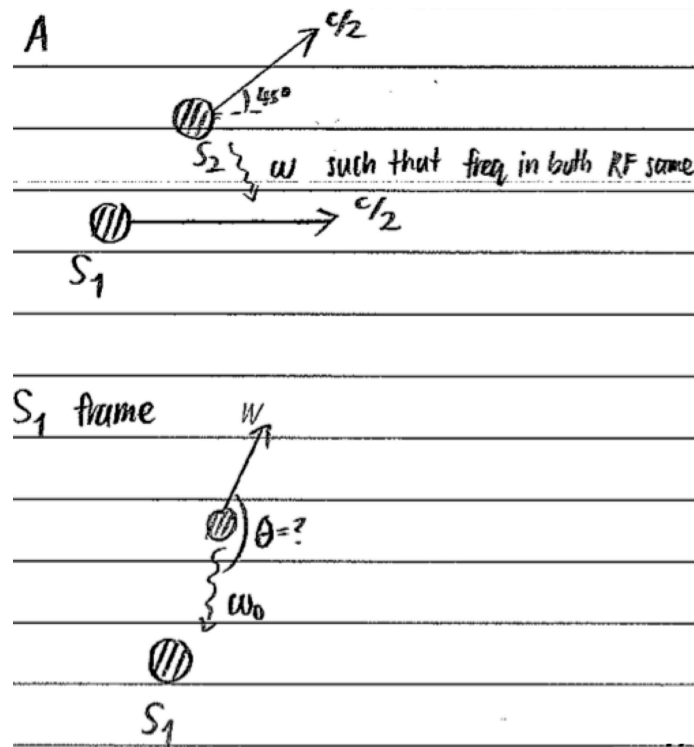 A
c/2
45°
S₂
ω such that freq in both RF same
c/2
S₁
S₁ frame
W
θ=?
ω₀
S₁